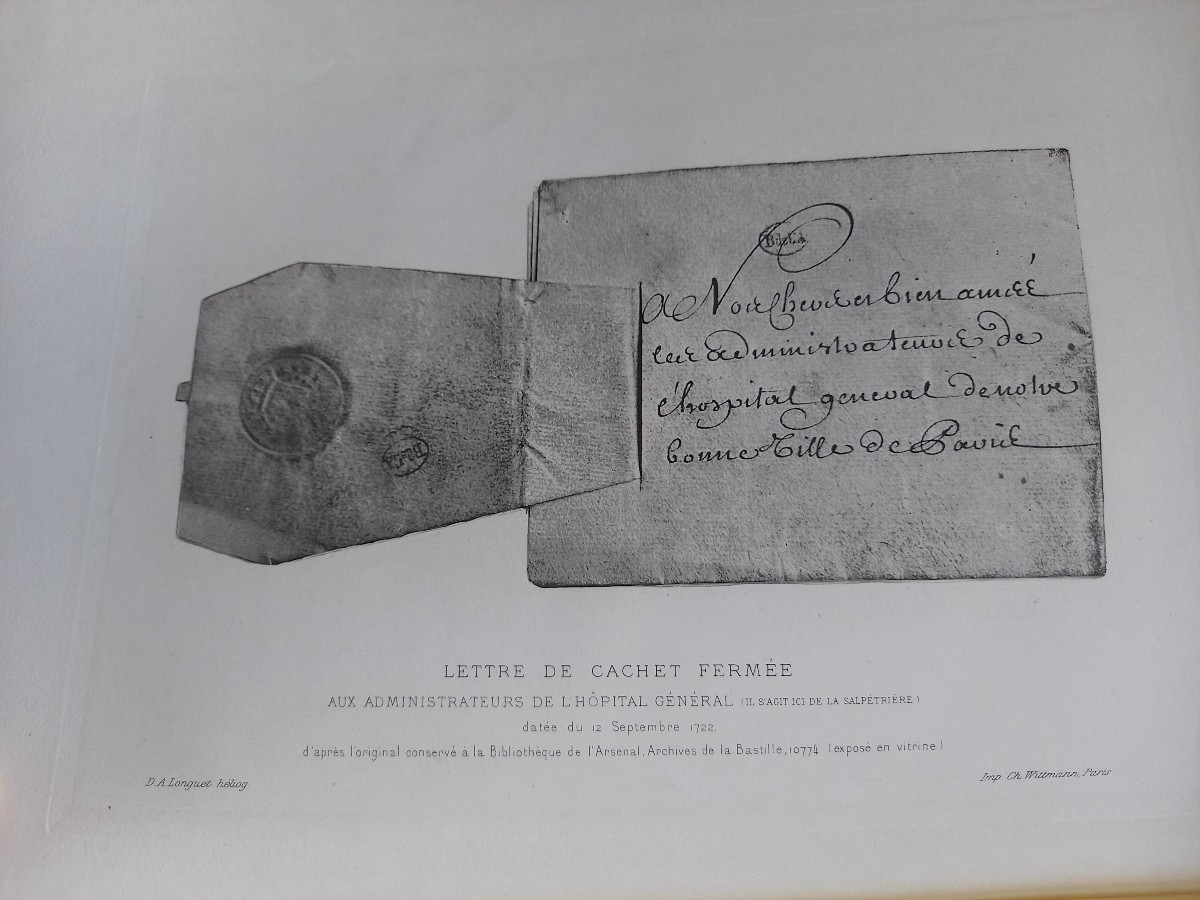 A Nos Chers et bien amées
les administrateurs de
l'hospital general de notre
bonne Ville de Paris
LETTRE DE CACHET FERMÉE
AUX ADMINISTRATEURS DE L'HÔPITAL GÉNÉRAL (IL S'AGIT ICI DE LA SALPÊTRIÈRE)
datée du 12 Septembre 1722.
d'après l'original conservé à la Bibliothèque de l'Arsenal, Archives de la Bastille, 10774 (exposé en vitrine)
D.A. Longuet héliog
Imp. Ch. Wittmann, Paris